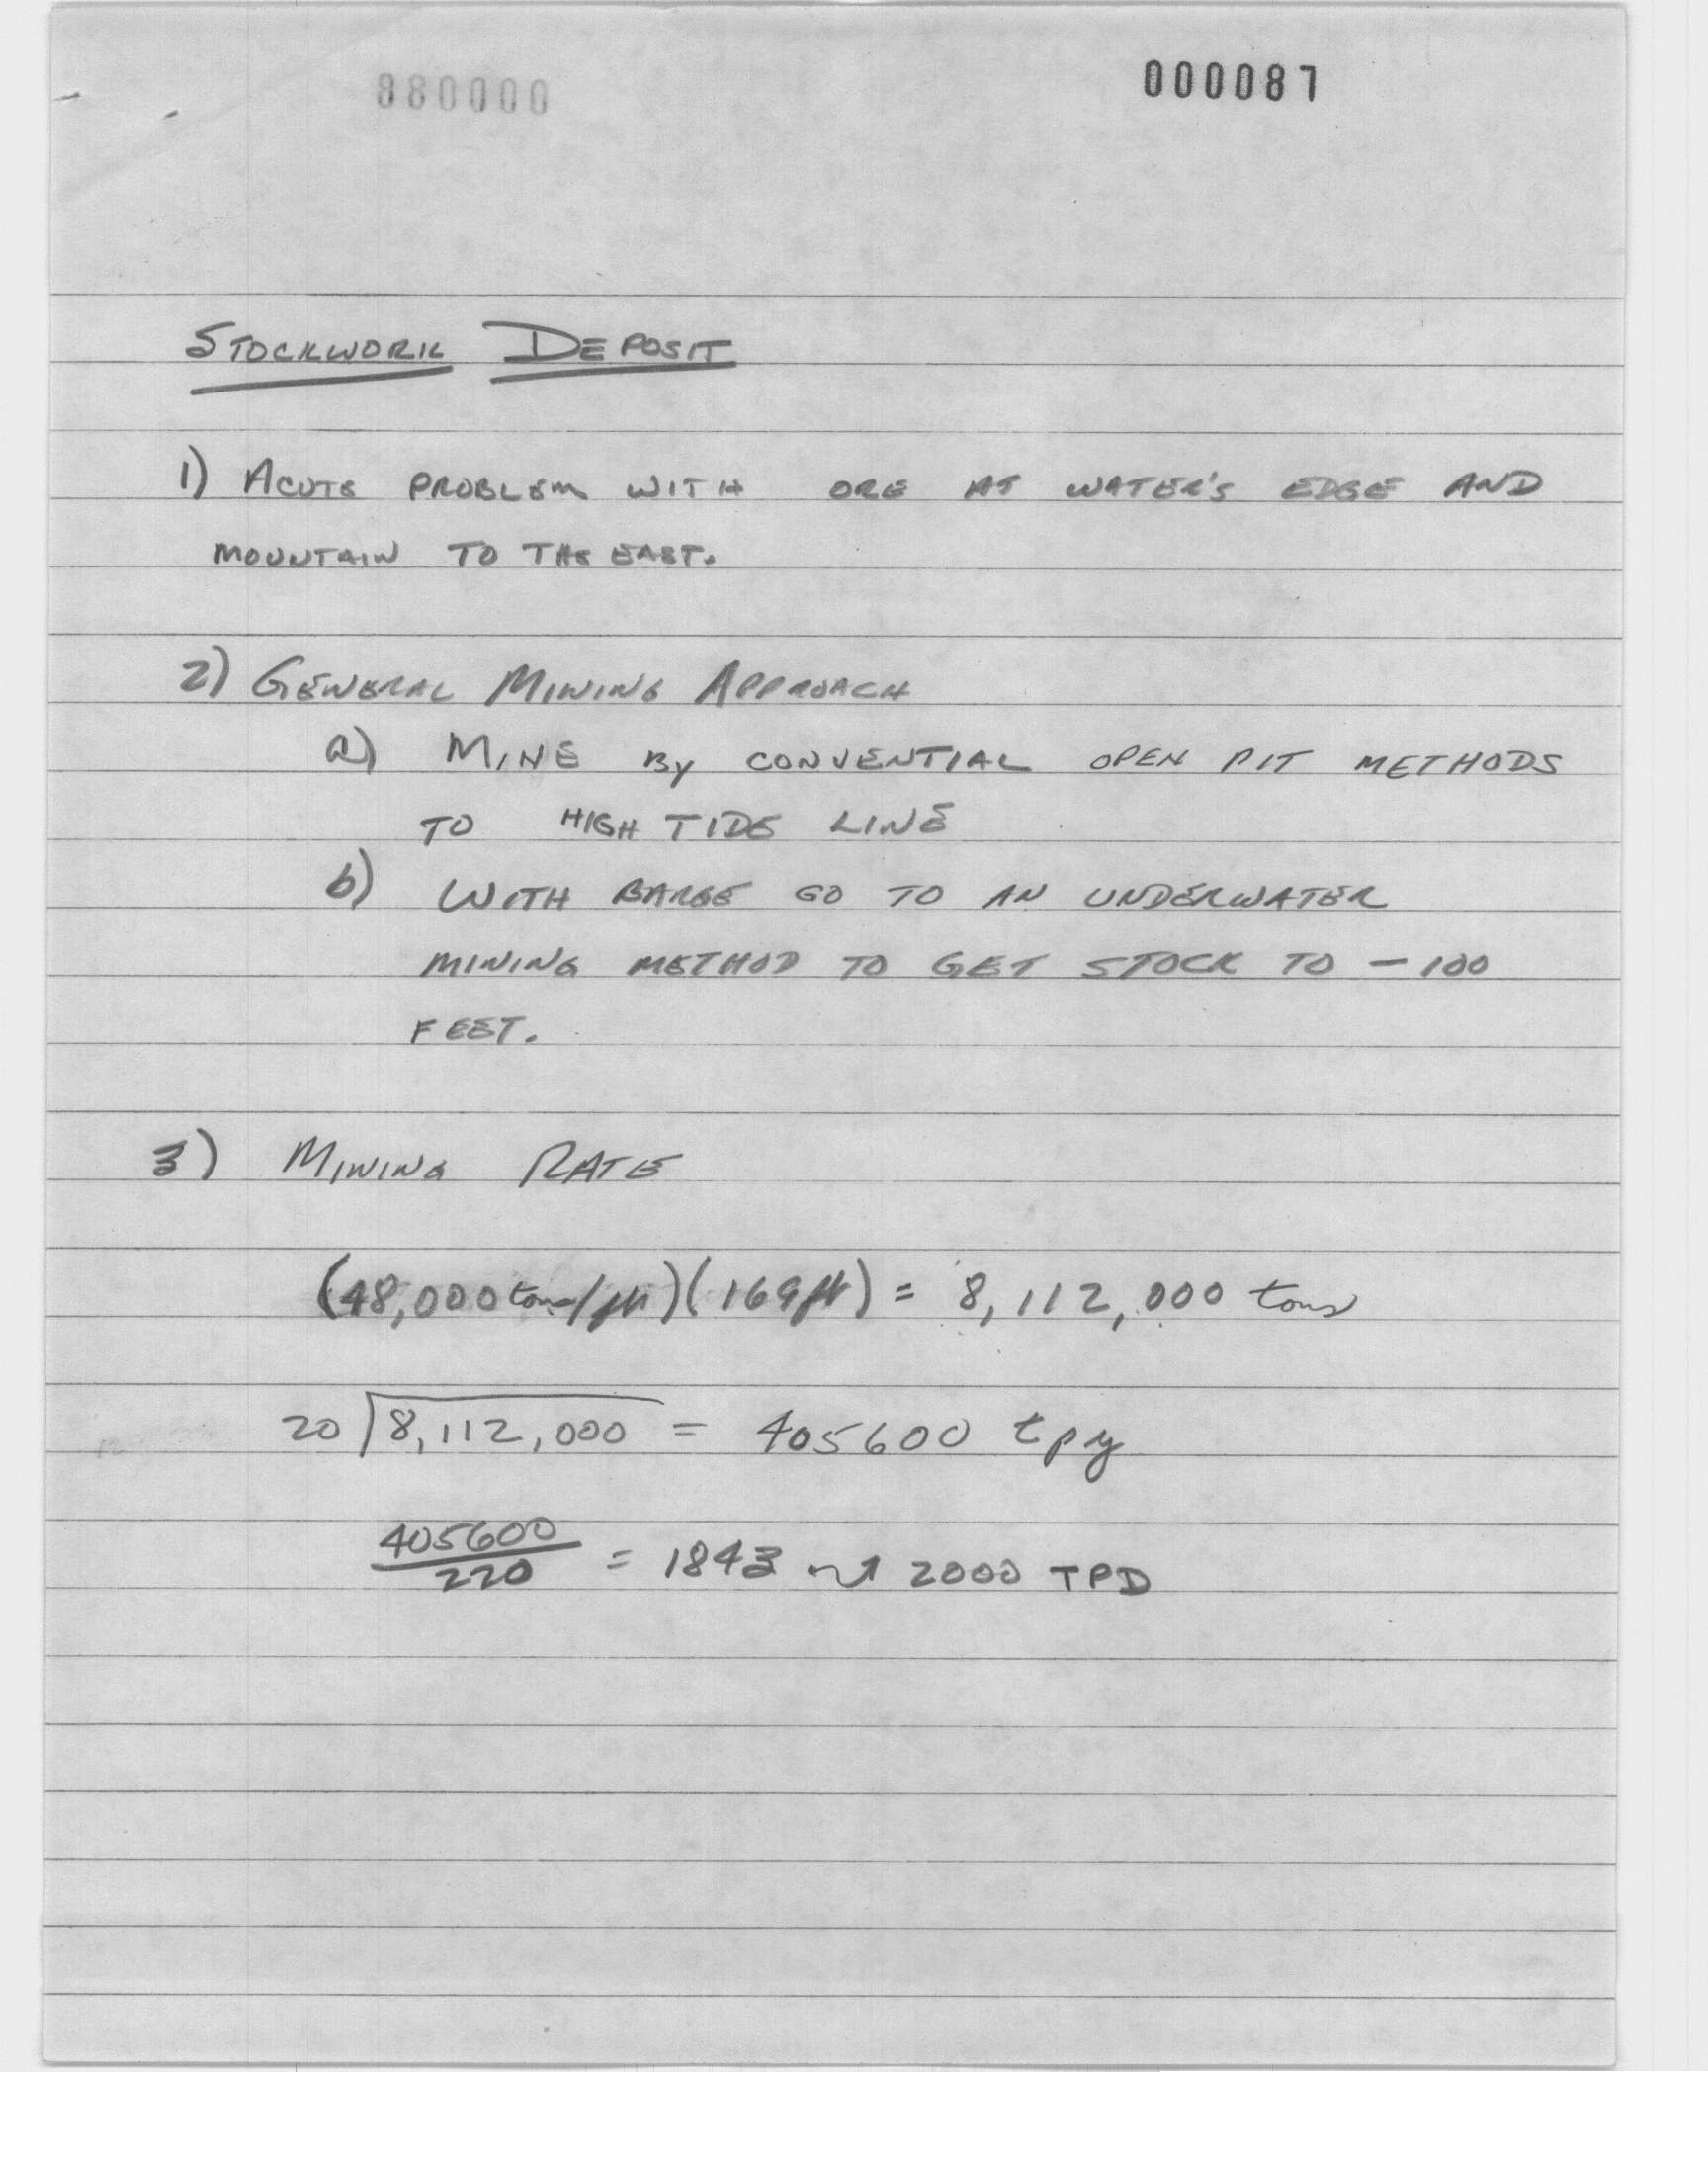 880000
000087
STOCKWORK DEPOSIT
1) ACUTE PROBLEM WITH ORE AT WATER'S EDGE AND
MOUNTAIN TO THE EAST.
2) GENERAL MINING APPROACH
a) MINE BY CONVENTIAL OPEN PIT METHODS
TO HIGH TIDE LINE
b) WITH BARGE GO TO AN UNDERWATER
MINING METHOD TO GET STOCK TO -100
FEET.
3) MINING RATE
(48,000 tons/ft)(169ft) = 8,112,000 tons
20 ⟌ 8,112,000 = 405600 tpy
405600
220 = 1843 ~ 2000 TPD